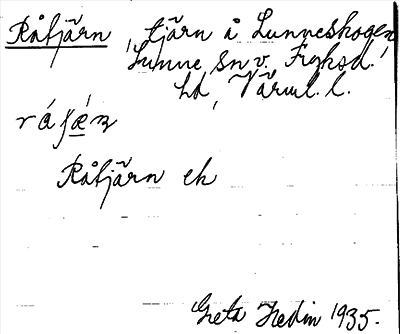 Råtjärn, tjärn å Lunneskogen,
Sunne sn v. Fryksd.
hd, Värml. l.
Råtjärn ek
Greta Hedin 1935.